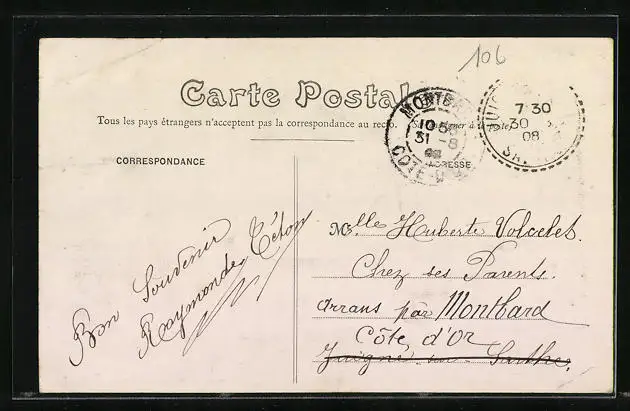 106
Carte Postale
Tous les pays étrangers n'acceptent pas la correspondance au recto. (Se renseigner à la Poste)
MONTBARD
10 55
31 -8
08
COTE-D'OR
7 30
30
08
CORRESPONDANCE
ADRESSE
Bon Souvenir
Raymonde
Melle Huberte
Chez ses Parents.
Arrans par Montbard
Côte d'Or
Juigné sur Sarthe,